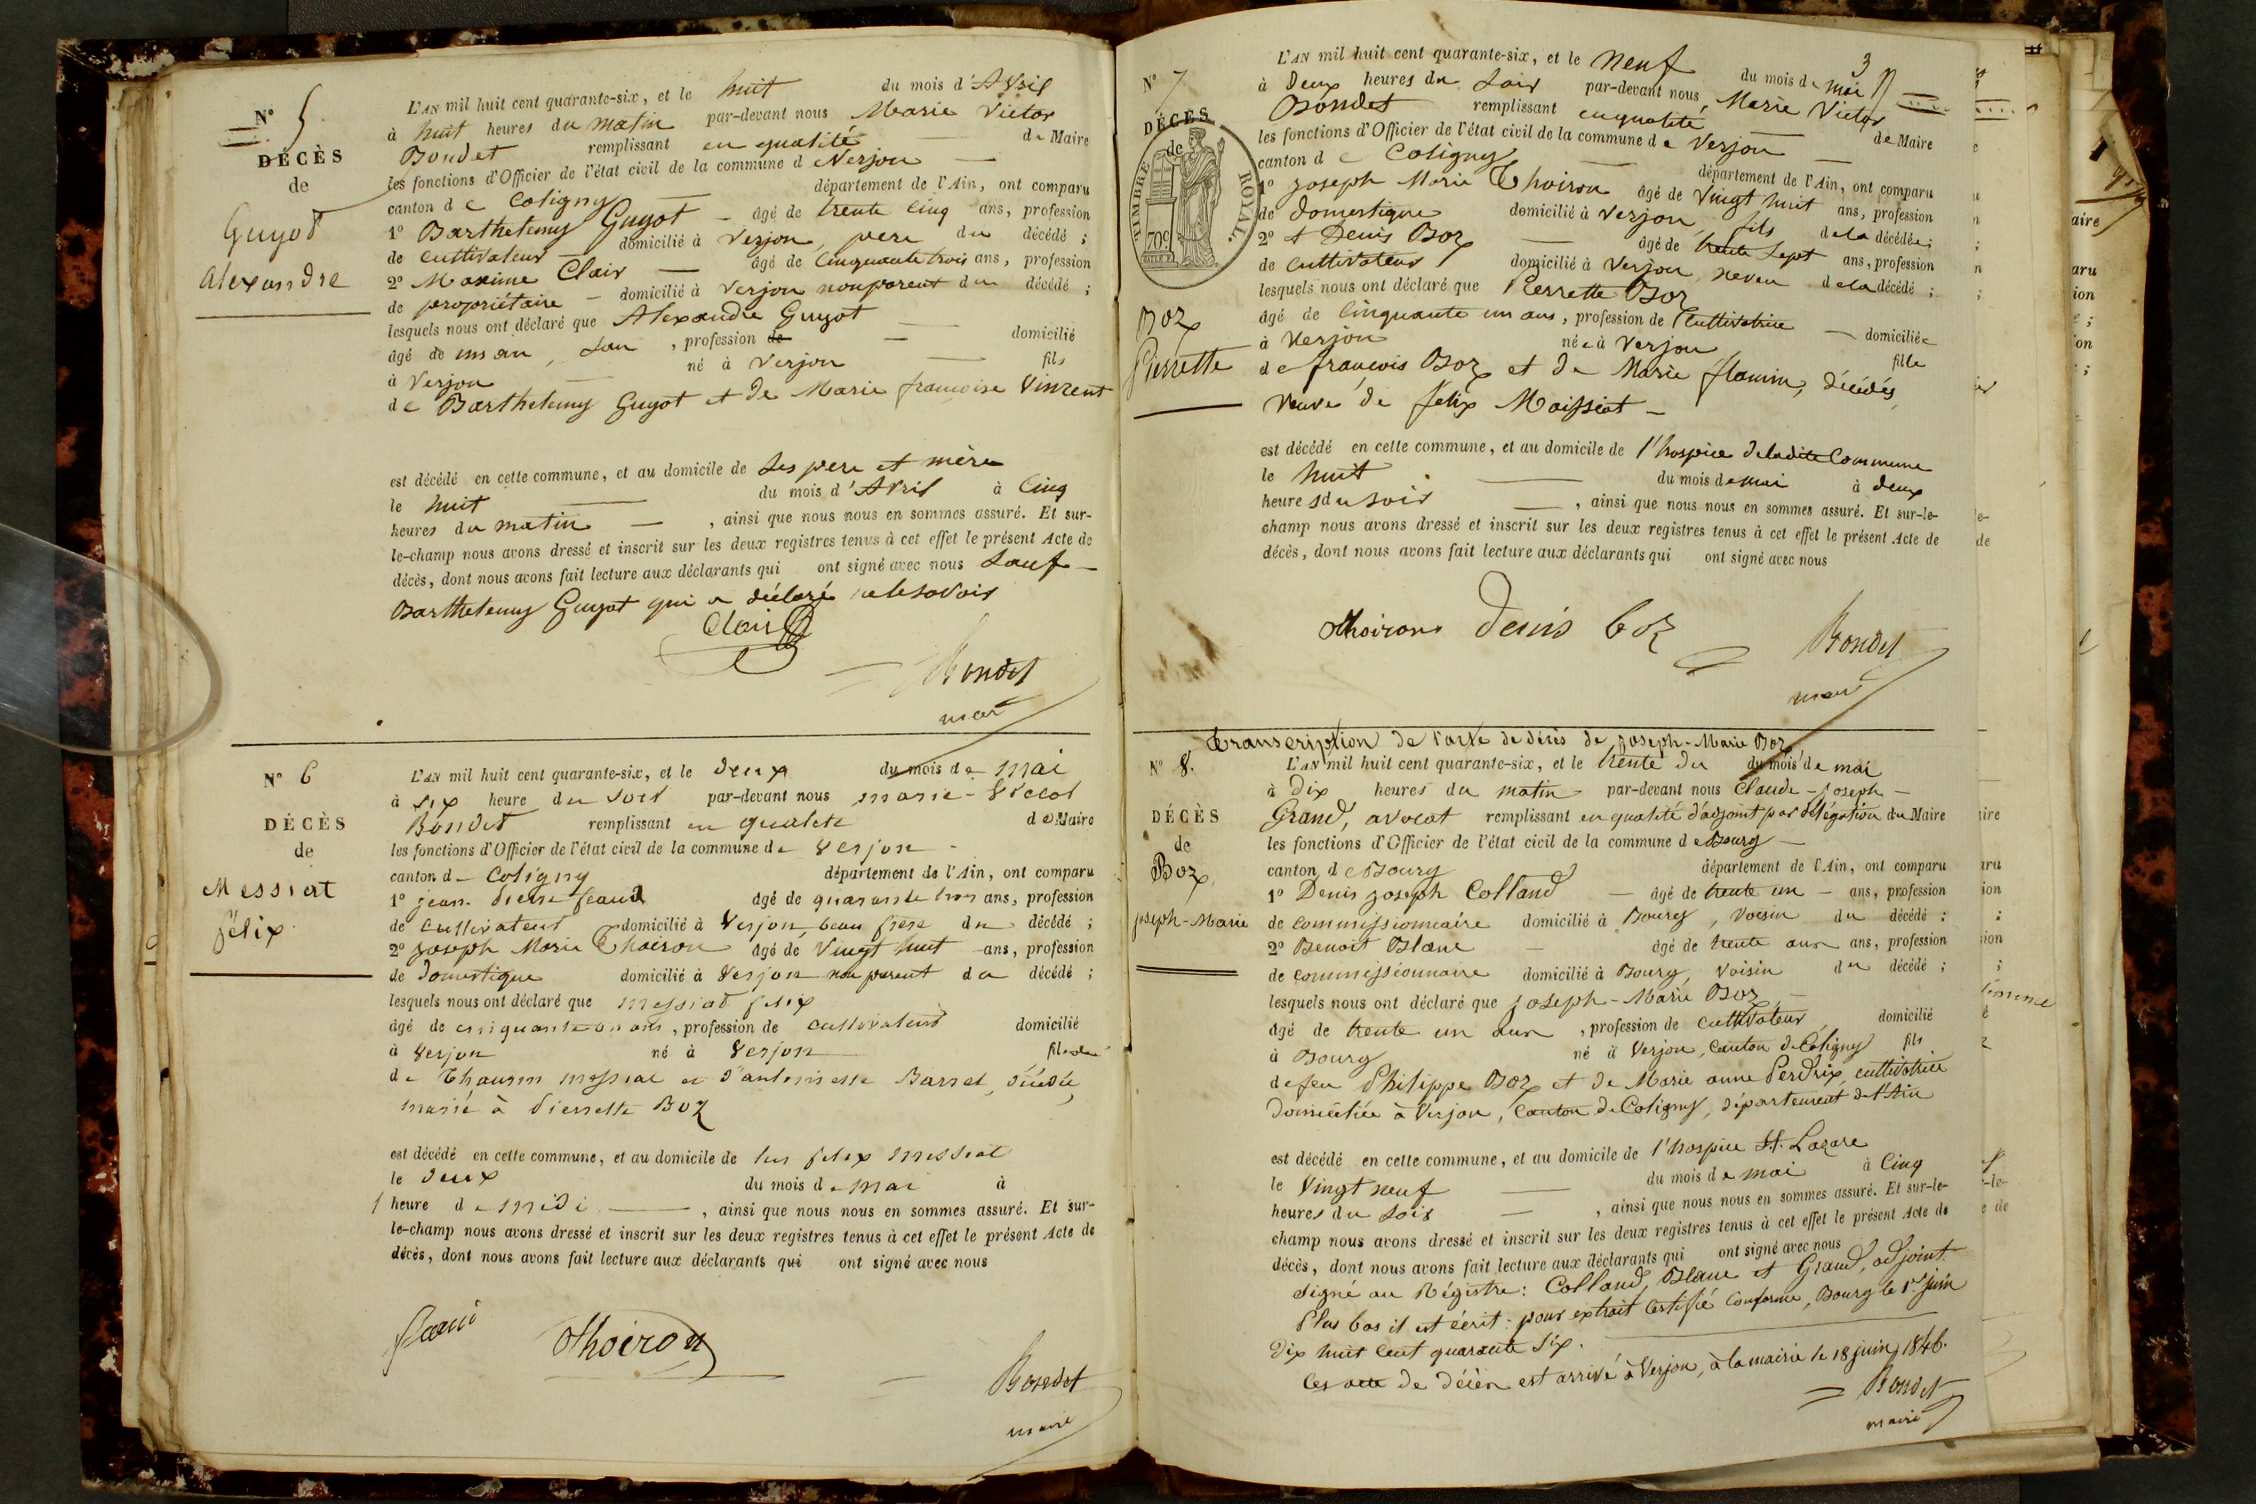 N° 5
DÉCÈS
de
Guyot
Alexandre
L'AN mil huit cent quarante-six, et le huit du mois d'Avril
à huit heures du matin par-devant nous Marie Victor
Bondet remplissant en qualité de Maire
les fonctions d'Officier de l'état civil de la commune de Verjon
canton de Coligny département de l'Ain, ont comparu
1° Barthelemy Guyot âgé de trente cinq ans, profession
de cultivateur domicilié à Verjon, pere du décédé;
2° Maxime Clair âgé de cinquante trois ans, profession
de propriétaire domicilié à Verjon non parent du décédé;
lesquels nous ont déclaré que Alexandre Guyot
âgé de un an, sans, profession de domicilié
à Verjon né à Verjon fils
de Barthelemy Guyot et de Marie françoise Vincent
est décédé en cette commune, et au domicile de ses pere et mère
le huit du mois d'Avril à cinq
heures du matin, ainsi que nous nous en sommes assuré. Et sur-
le-champ nous avons dressé et inscrit sur les deux registres tenus à cet effet le présent Acte de
décès, dont nous avons fait lecture aux déclarants qui ont signé avec nous sauf
Barthelemy Guyot qui a déclaré ne le savoir
Clair
Bondet
maire
N° 6
DÉCÈS
de
Messiat
félix
L'AN mil huit cent quarante-six, et le deux du mois de mai
à six heure du soir par-devant nous marie-Victor
Bondet remplissant en qualité de Maire
les fonctions d'Officier de l'état civil de la commune de Verjon
canton de Coligny département de l'Ain, ont comparu
1° jean pierre feaud âgé de quarante trois ans, profession
de cultivateur domicilié à Verjon, beau frère du décédé;
2° Joseph Marie Thoiron âgé de Vingt huit ans, profession
de domestique domicilié à Verjon non parent du décédé;
lesquels nous ont déclaré que messiat felix
âgé de cinquante ans, profession de cultivateur domicilié
à Verjon né à Verjon fils de
de messiat et d'antoinette Barret, décédés,
marié à Pierrette Boz
est décédé en cette commune, et au domicile de felix messiat
le deux du mois de mai à
1 heure de midi, ainsi que nous nous en sommes assuré. Et sur-
le-champ nous avons dressé et inscrit sur les deux registres tenus à cet effet le présent Acte de
décès, dont nous avons fait lecture aux déclarants qui ont signé avec nous
Thoiron
Bondet
maire
3
N° 7
DÉCÈS
de
TIMBRE ROYAL.
70c
Boz
Pierrette
L'AN mil huit cent quarante-six, et le neuf du mois de mai
à Deux heures du soir par-devant nous, Marie Victor
Bondet remplissant en qualité de Maire
les fonctions d'Officier de l'état civil de la commune de Verjon
canton de Coligny département de l'Ain, ont comparu
1° Joseph Marie Thoiron âgé de Vingt huit ans, profession
de domestique domicilié à Verjon, fils de la décédée;
2° et Denis Boz âgé de trente sept ans, profession
de cultivateur domicilié à Verjon neveu de la décédé;
lesquels nous ont déclaré que Pierrette Boz
âgé de cinquante un ans, profession de cultivatrice domiciliée
à Verjon née à Verjon fille
de françois Boz et de Marie flamin, décédés,
veuve de félix Moissiat
est décédé en cette commune, et au domicile de l'hospice de ladite Commune
le huit du mois de mai à deux
heures du soir, ainsi que nous nous en sommes assuré. Et sur-le-
champ nous avons dressé et inscrit sur les deux registres tenus à cet effet le présent Acte de
décès, dont nous avons fait lecture aux déclarants qui ont signé avec nous
Thoiron Denis boz Bondet
maire
Transcription de l'acte de décès de Joseph-Marie Boz
N° 8.
DÉCÈS
de
Boz,
Joseph-Marie
L'AN mil huit cent quarante-six, et le trente du du mois de mai
à Dix heures du matin par-devant nous Claude-Joseph
Grand, avocat remplissant en qualité d'adjoint par délégation du Maire
les fonctions d'Officier de l'état civil de la commune de Bourg
canton de Bourg département de l'Ain, ont comparu
1° Denis Joseph Colland âgé de trente un ans, profession
de commissionnaire domicilié à Bourg, voisin du décédé;
2° Benoit Blanc âgé de trente ans, profession
de commissionnaire domicilié à Bourg, voisin du décédé;
lesquels nous ont déclaré que Joseph-Marie Boz
âgé de trente un ans, profession de cultivateur domicilié
à Bourg né à Verjon, canton de Coligny fils
de feu Philippe Boz et de Marie anne Perdrix, cultivatrice
domiciliée à Verjon, canton de Coligny, département de l'Ain
est décédé en cette commune, et au domicile de l'hospice St. Lazare
le Vingt neuf du mois de mai à cinq
heures du soir, ainsi que nous nous en sommes assuré. Et sur-le-
champ nous avons dressé et inscrit sur les deux registres tenus à cet effet le présent Acte de
décès, dont nous avons fait lecture aux déclarants qui ont signé avec nous
signé au Régistre: Colland, Blanc et Grand, adjoint
Plus bas il est écrit: pour extrait certifié conforme, Bourg le 1er juin
Dix huit cent quarante six.
Ces acte de décès est arrivé à Verjon, à la mairie le 18 juin 1846.
Bondet
maire